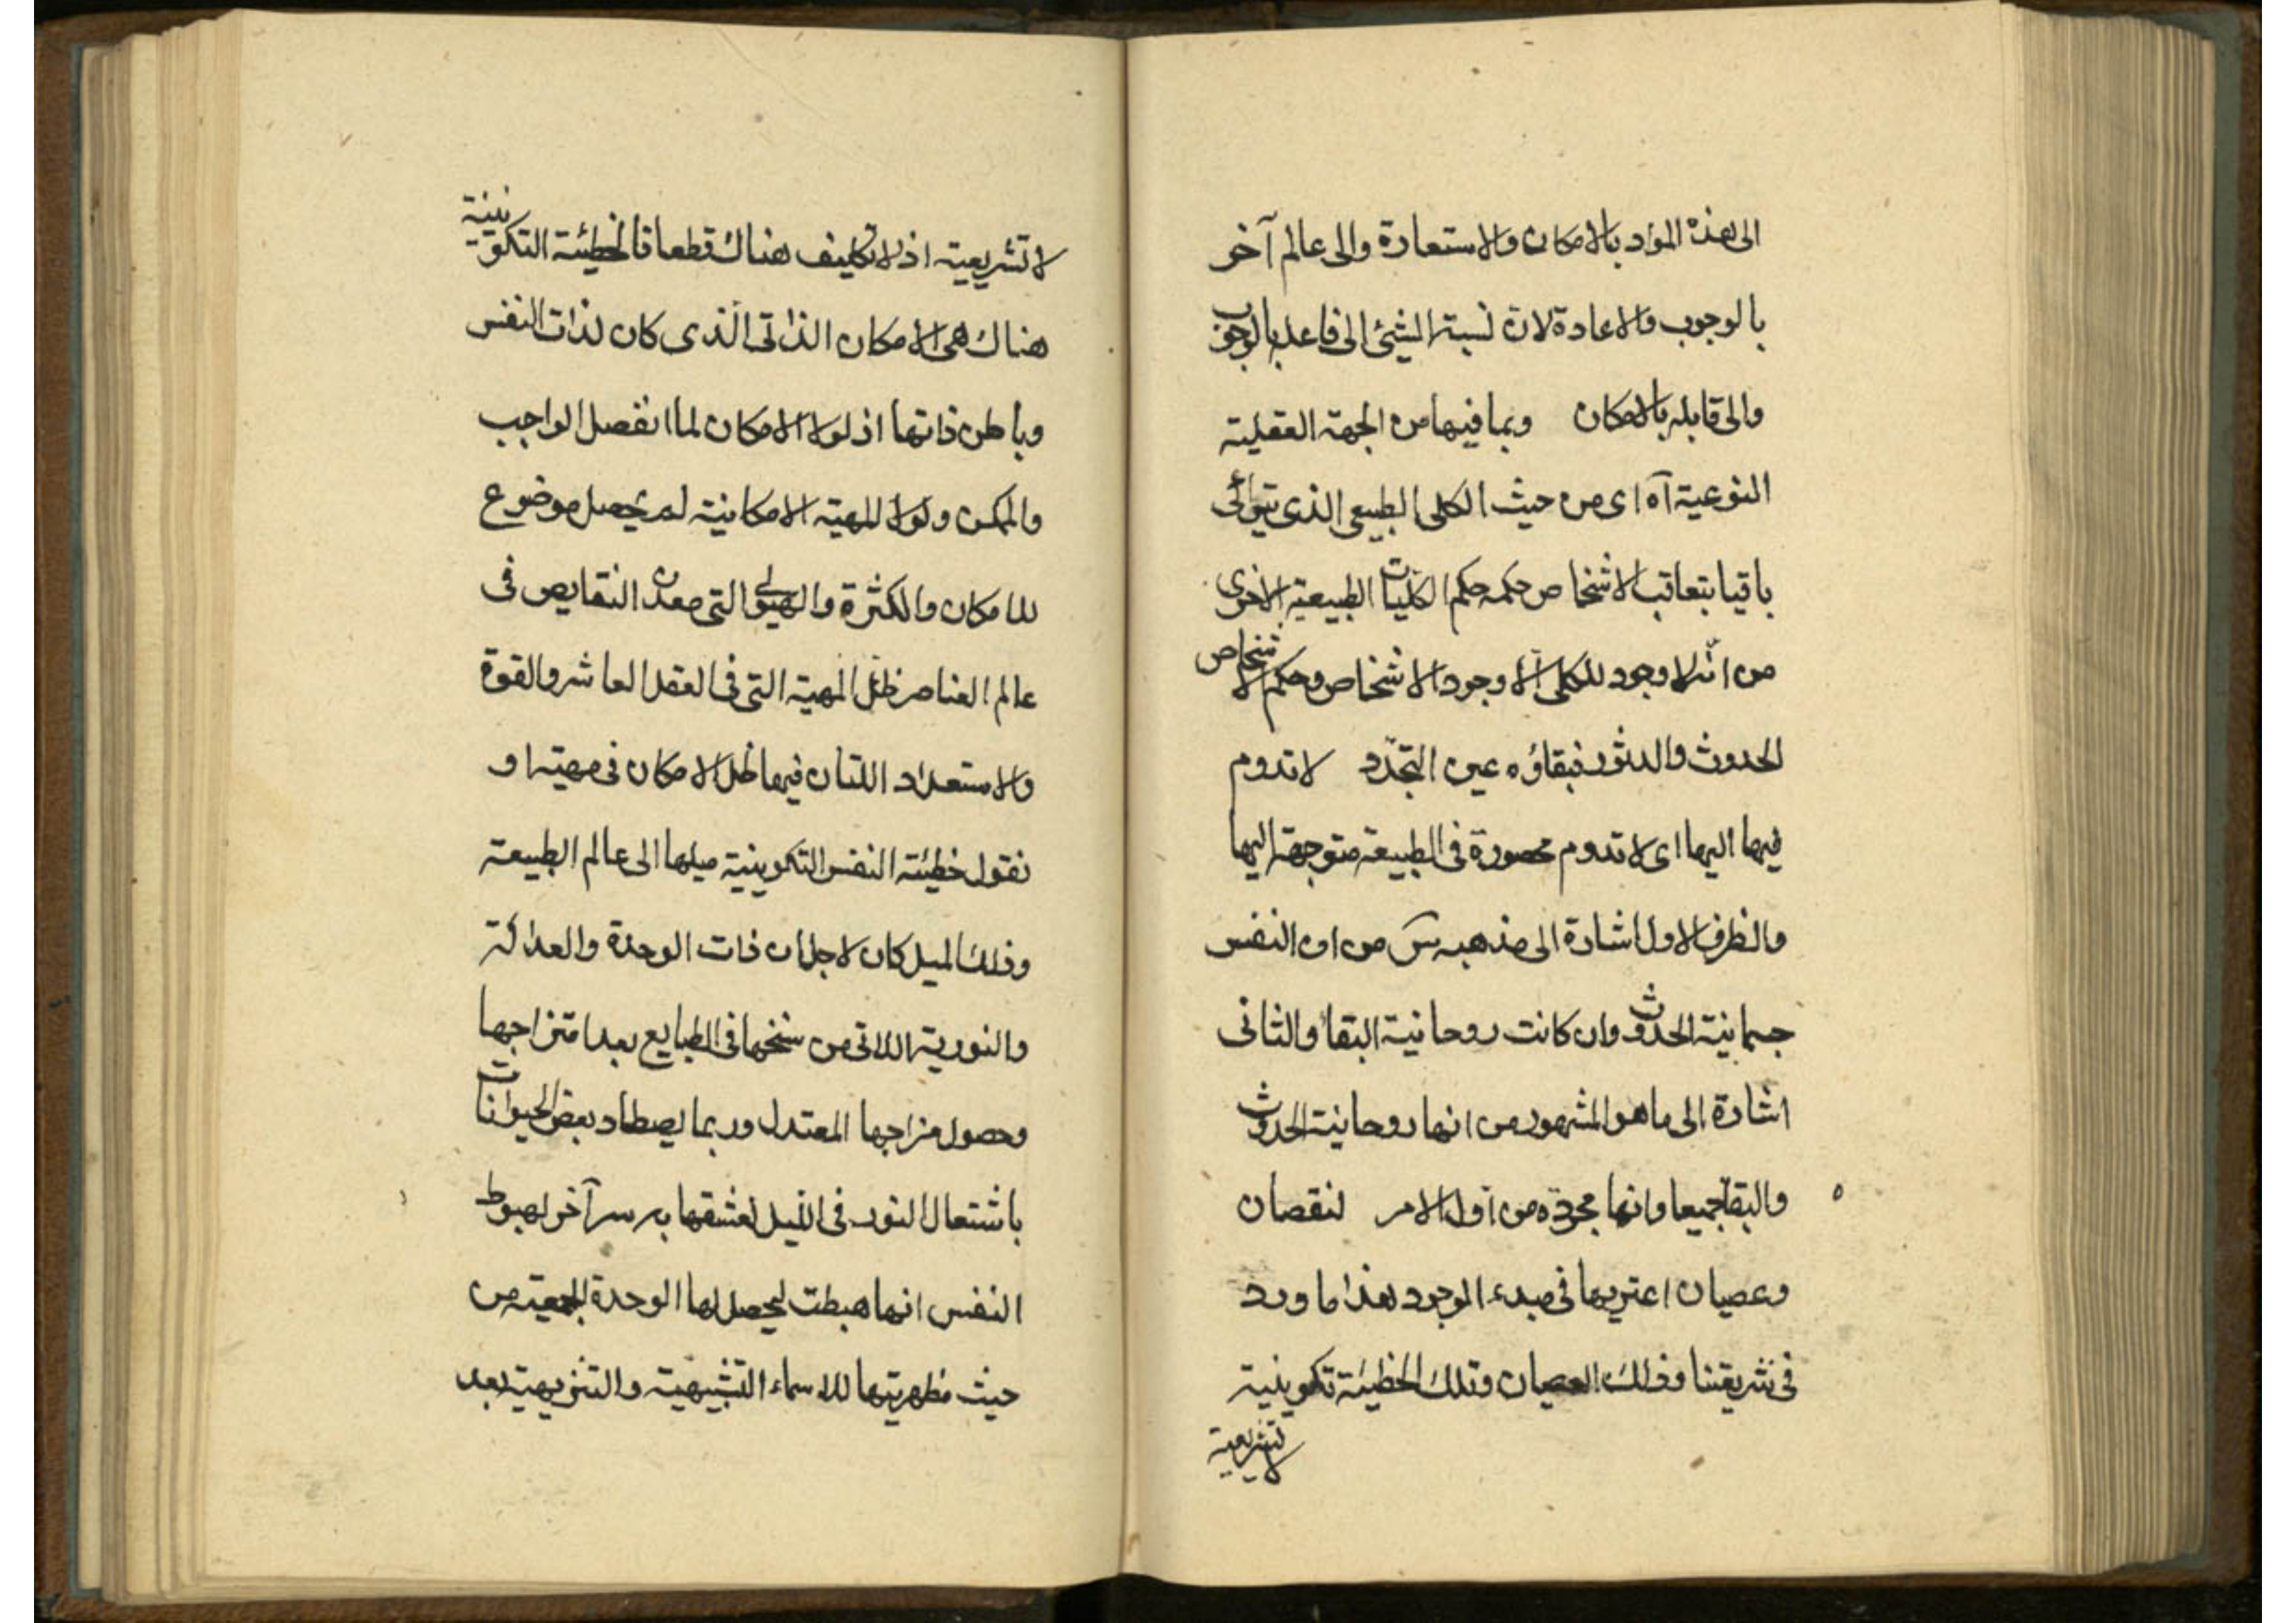 الى هذه المواد بالامكان والاستعارة والى عالم آخر
بالوجوب والاعادة لان نسبة الشيئ الى فاعله بالوجوب
والى قابله بالامكان وبما فيها من الجهة العقلية
النوعية آه اى من حيث الكلى الطبيعى الذى يترائى
باقيا بتعاقب الاشخاص حكمه حكم الكليات الطبيعية الاخرى
من انه لا وجود للكلى الا وجود الاشخاص وحكم الاشخاص
الحدوث والدثور فبقاؤه عين التجدد لا تدوم
فيها اليها اى لا تدوم محصورة فى الطبيعة متوجهة اليها
والظرف الاول اشارة الى مذهبه س من ان النفس
جسمانية الحدوث وان كانت روحانية البقاء والثانى
اشارة الى ما هو المشهور من انها روحانية الحدوث
والبقا جميعا وانها مجردة من اول الامر لنقصان
وعصيان اعتريها فى مبدء الوجود هذا ما ورد
فى شريعتنا وذلك العصيان وتلك الخطيئة تكوينية
لا تشريعية
لا تشريعية اذ لا تكليف هناك قطعا فالخطيئة التكوينية
هناك هى الامكان الذاتى الذى كان لذات النفس
وباطن ذاتها اذ لولا الامكان لما انفصل الواجب
والممكن ولولا المهية الامكانية لم يحصل موضوع
للامكان والكثرة والهيولى التى معدن النقايص فى
عالم العناصر ظل المهية التى فى العقل العاشر والقوة
والاستعداد اللتان فيها ظل الامكان فى مهيته او
نقول خطيئة النفس التكوينية ميلها الى عالم الطبيعة
وذلك الميل كان لاجل ان ذات الوحدة والعدالة
والنورية اللاتى من سنخها فى الطبايع بعد امتزاجها
وحصول مزاجها المعتدل وربما يصطاد بعض الحيوانات
باشتعال النور فى الليل لعشقها به سر آخر لهبوط
النفس انها هبطت ليحصل لها الوحدة الجمعية من
حيث مظهريتها للاسماء التشبيهية والتنزيهية بعد